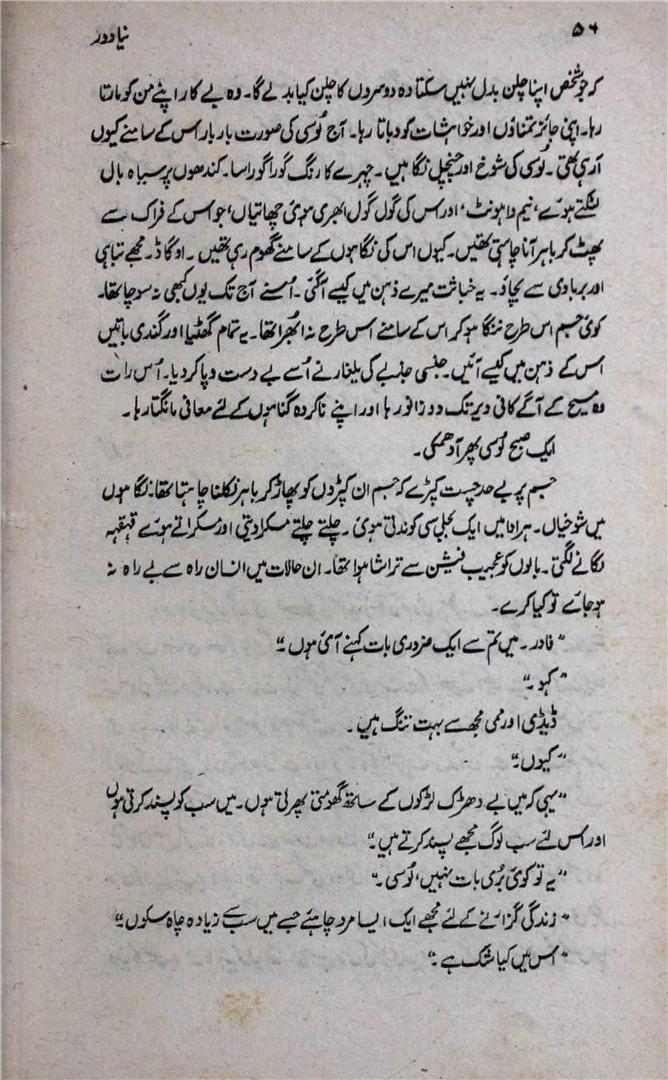 ۵۶ نیا دور
کہ جو شخص اپنا چلن بدل نہیں سکتا وہ دوسروں کا چلن کیا بدلے گا۔ وہ بے کار اپنے من کو مارتا
رہا۔ اپنی جائز تمناؤں اور خواہشات کو دباتا رہا۔ آج لُوسی کی صورت بار بار اس کے سامنے کیوں
آرہی تھی۔ لُوسی کی شوخ اور چنچل نگاہیں۔ چہرے کا رنگ گورا گورا سا۔ کندھوں پر سیاہ بال
لٹکتے ہوئے، نیم وا ہونٹ، اور اس کی گول گول ابھری ہوئی چھاتیاں، جو اس کے فراک سے
پھٹ کر باہر آنا چاہتی تھیں۔ کیوں اس کی نگاہوں کے سامنے گھوم رہی تھیں۔ او گاڈ۔ مجھے تباہی
اور بربادی سے بچاؤ۔ یہ خباثت میرے ذہن میں کیسے آگئی۔ اُسنے آج تک یوں کبھی نہ سوچا تھا۔
کوئی جسم اس طرح ننگا ہو کر اس کے سامنے اس طرح نہ اُبھرا تھا۔ یہ تمام گھٹیا اور گندی باتیں
اس کے ذہن میں کیسے آئیں۔ جنسی جذبے کی یلغار نے اُسے بے دست و پا کر دیا۔ اُس رات
وہ مسیح کے آگے کافی دیر تک دو زانو رہا اور اپنے ناکردہ گناہوں کے لئے معافی مانگتا رہا۔
ایک صبح لُوسی پھر آدھمکی۔
جسم پر بے حد چست کپڑے کہ جسم ان کپڑوں کو پھاڑ کر باہر نکلنا چاہتا تھا۔ نگاہوں
میں شوخیاں۔ ہر ادا میں ایک بجلی سی کوندتی ہوئی۔ چلتے چلتے مسکرا دیتی اور مسکراتے ہوئے قہقہہ
لگانے لگتی۔ بالوں کو عجیب فیشن سے تراشا ہوا تھا۔ ان حالات میں انسان راہ سے بے راہ نہ
ہو جائے تو کیا کرے۔
"فادر۔ میں تم سے ایک ضروری بات کہنے آئی ہوں۔"
"کہو۔"
ڈیڈی اور ممی مجھ سے بہت تنگ ہیں۔
"کیوں۔"
"یہی کہ میں بے دھڑک لڑکوں کے ساتھ گھومتی پھرتی ہوں۔ میں سب کو پسند کرتی ہوں
اور اس لئے سب لوگ مجھے پسند کرتے ہیں۔"
"یہ تو کوئی بُری بات نہیں، لُوسی۔"
"زندگی گزارنے کے لئے مجھے ایک ایسا مرد چاہئے جسے میں سب سے زیادہ چاہ سکوں۔"
"اس میں کیا شک ہے۔"